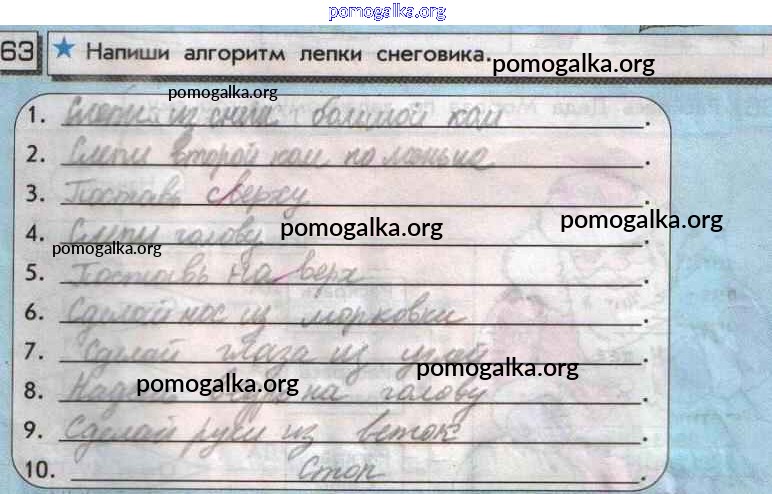 pomogalka.org
63 ★ Напиши алгоритм лепки снеговика.
pomogalka.org
pomogalka.org
1. Слепи из снега большой ком.
2. Слепи второй ком поменьше.
3. Поставь сверху.
pomogalka.org
4. Слепи голову.
pomogalka.org
pomogalka.org
5. Поставь на верх.
6. Сделай нос из морковки.
7. Сделай глаза из углей.
pomogalka.org
pomogalka.org
8. на голову.
9. Сделай руки из веток.
10. Стоп.